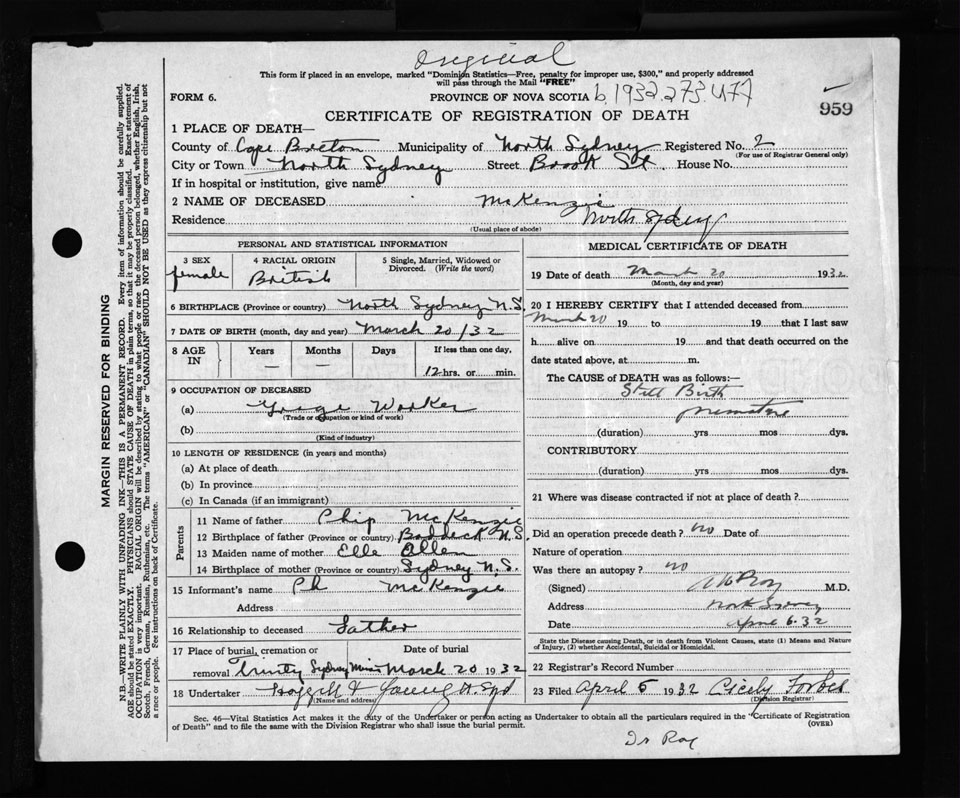 Original
This form if placed in an envelope, marked "Dominion Statistics—Free, penalty for improper use, $300," and properly addressed
will pass through the Mail "FREE"
FORM 6.
PROVINCE OF NOVA SCOTIA
959
CERTIFICATE OF REGISTRATION OF DEATH
1 PLACE OF DEATH—
County of Cape Breton Municipality of North Sydney Registered No. 2
(For use of Registrar General only)
City or Town North Sydney Street Brook St House No.
If in hospital or institution, give name
2 NAME OF DECEASED McKenzie
Residence North Sydney
(Usual place of abode)
PERSONAL AND STATISTICAL INFORMATION
3 SEX
female
4 RACIAL ORIGIN
British
5 Single, Married, Widowed or
Divorced. (Write the word)
6 BIRTHPLACE (Province or country) North Sydney N.S.
7 DATE OF BIRTH (month, day and year) March 20/32
8 AGE
IN
Years
—
Months
—
Days
If less than one day,
12 hrs. or min.
9 OCCUPATION OF DECEASED
(a) Worker
(Trade or occupation or kind of work)
(b)
(Kind of industry)
10 LENGTH OF RESIDENCE (in years and months)
(a) At place of death
(b) In province
(c) In Canada (if an immigrant)
Parents
11 Name of father Phip McKenzie
12 Birthplace of father (Province or country) Baddeck N.S.
13 Maiden name of mother Elle Allen
14 Birthplace of mother (Province or country) Sydney N.S.
15 Informant's name Ph McKenzie
Address
16 Relationship to deceased Father
17 Place of burial, cremation or
removal Trinity Sydney Mines
Date of burial
March 20 1932
18 Undertaker
(Name and address)
MEDICAL CERTIFICATE OF DEATH
19 Date of death March 20 1932
(Month, day and year)
20 I HEREBY CERTIFY that I attended deceased from
March 20 19 to 19 that I last saw
h alive on 19 and that death occurred on the
date stated above, at m.
The CAUSE of DEATH was as follows:—
Still Birth
premature
(duration) yrs mos dys.
CONTRIBUTORY
(duration) yrs mos dys.
21 Where was disease contracted if not at place of death?
Did an operation precede death? no Date of
Nature of operation
Was there an autopsy? no
(Signed) Roy M.D.
Address North Sydney
Date April 6.32
State the Disease causing Death, or in death from Violent Causes, state (1) Means and Nature
of Injury, (2) whether Accidental, Suicidal or Homicidal.
22 Registrar's Record Number
23 Filed April 5 1932 Cicely Forbes
(Division Registrar)
Sec. 46—Vital Statistics Act makes it the duty of the Undertaker or person acting as Undertaker to obtain all the particulars required in the "Certificate of Registration
of Death" and to file the same with the Division Registrar who shall issue the burial permit.
(OVER)
Dr Roy
MARGIN RESERVED FOR BINDING
N.B.—WRITE PLAINLY WITH UNFADING INK—THIS IS A PERMANENT RECORD. Every item of information should be carefully supplied.
AGE should be stated EXACTLY. PHYSICIANS should STATE CAUSE OF DEATH in plain terms, so that it may be properly classified. Exact statement of
OCCUPATION is very important. RACIAL ORIGIN will be described by stating to what people or race the deceased person belonged, whether English, Irish,
Scotch, French, German, Russian, Ruthenian, etc. The terms "AMERICAN" or "CANADIAN" SHOULD NOT BE USED as they express citizenship but not
a race or people. See instructions on back of Certificate.